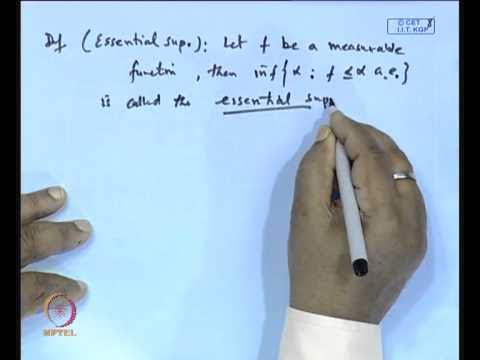 © CET
I.I.T. KGP
Df (Essential sup.): Let f be a measurable
function, then inf{α : f ≤ α a.e.}
is called the essential sup
NPTEL